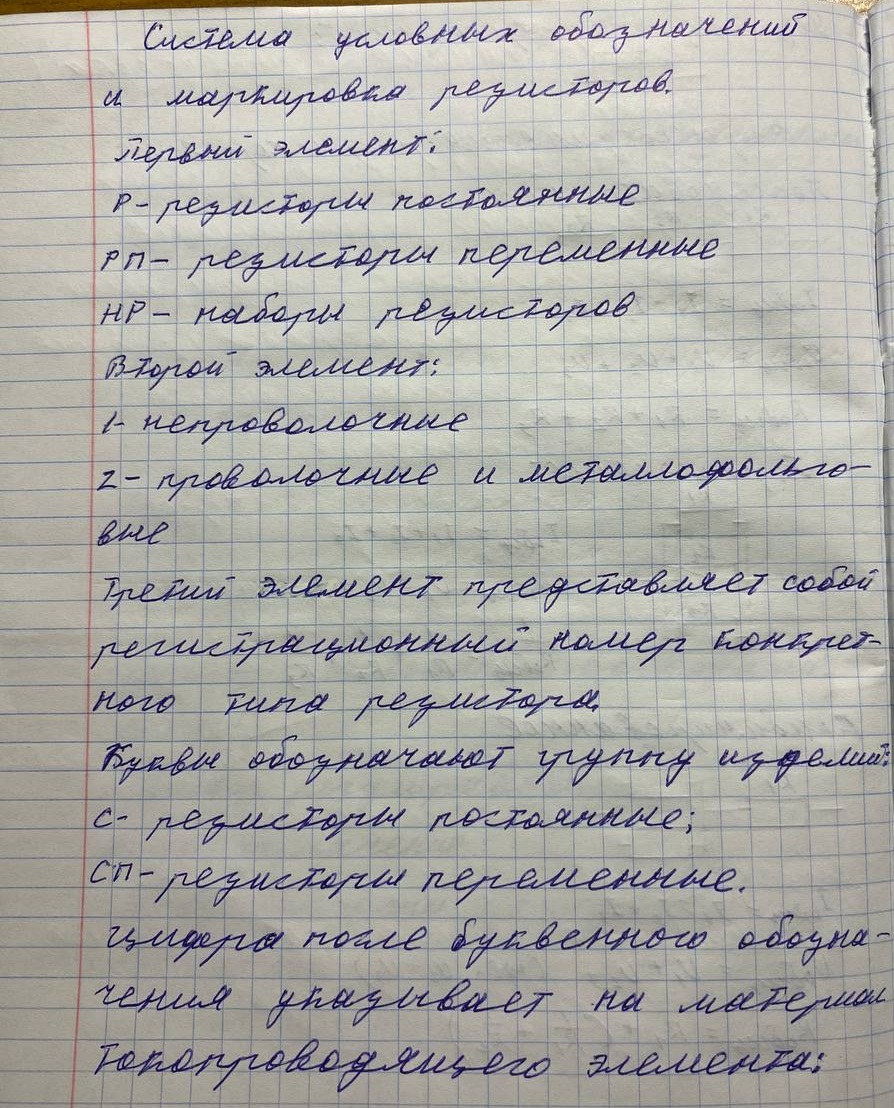 Система условных обозначений
и маркировка резисторов.
Первый элемент:
Р- резисторы постоянные
РП- резисторы переменные
НР- наборы резисторов
Второй элемент:
1- непроволочные
2- проволочные и металлофольго-
вые
Третий элемент представляет собой
регистрационный номер конкрет-
ного типа резистора.
Буквы обозначают группу изделий:
С- резисторы постоянные;
СП- резисторы переменные.
Цифра после буквенного обозна-
чения указывает на материал
токопроводящего элемента: